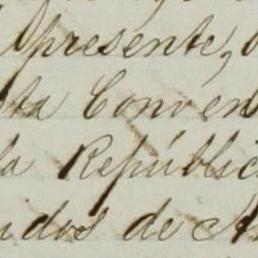 presente,
sta Conven
la Repúblic
idos de A